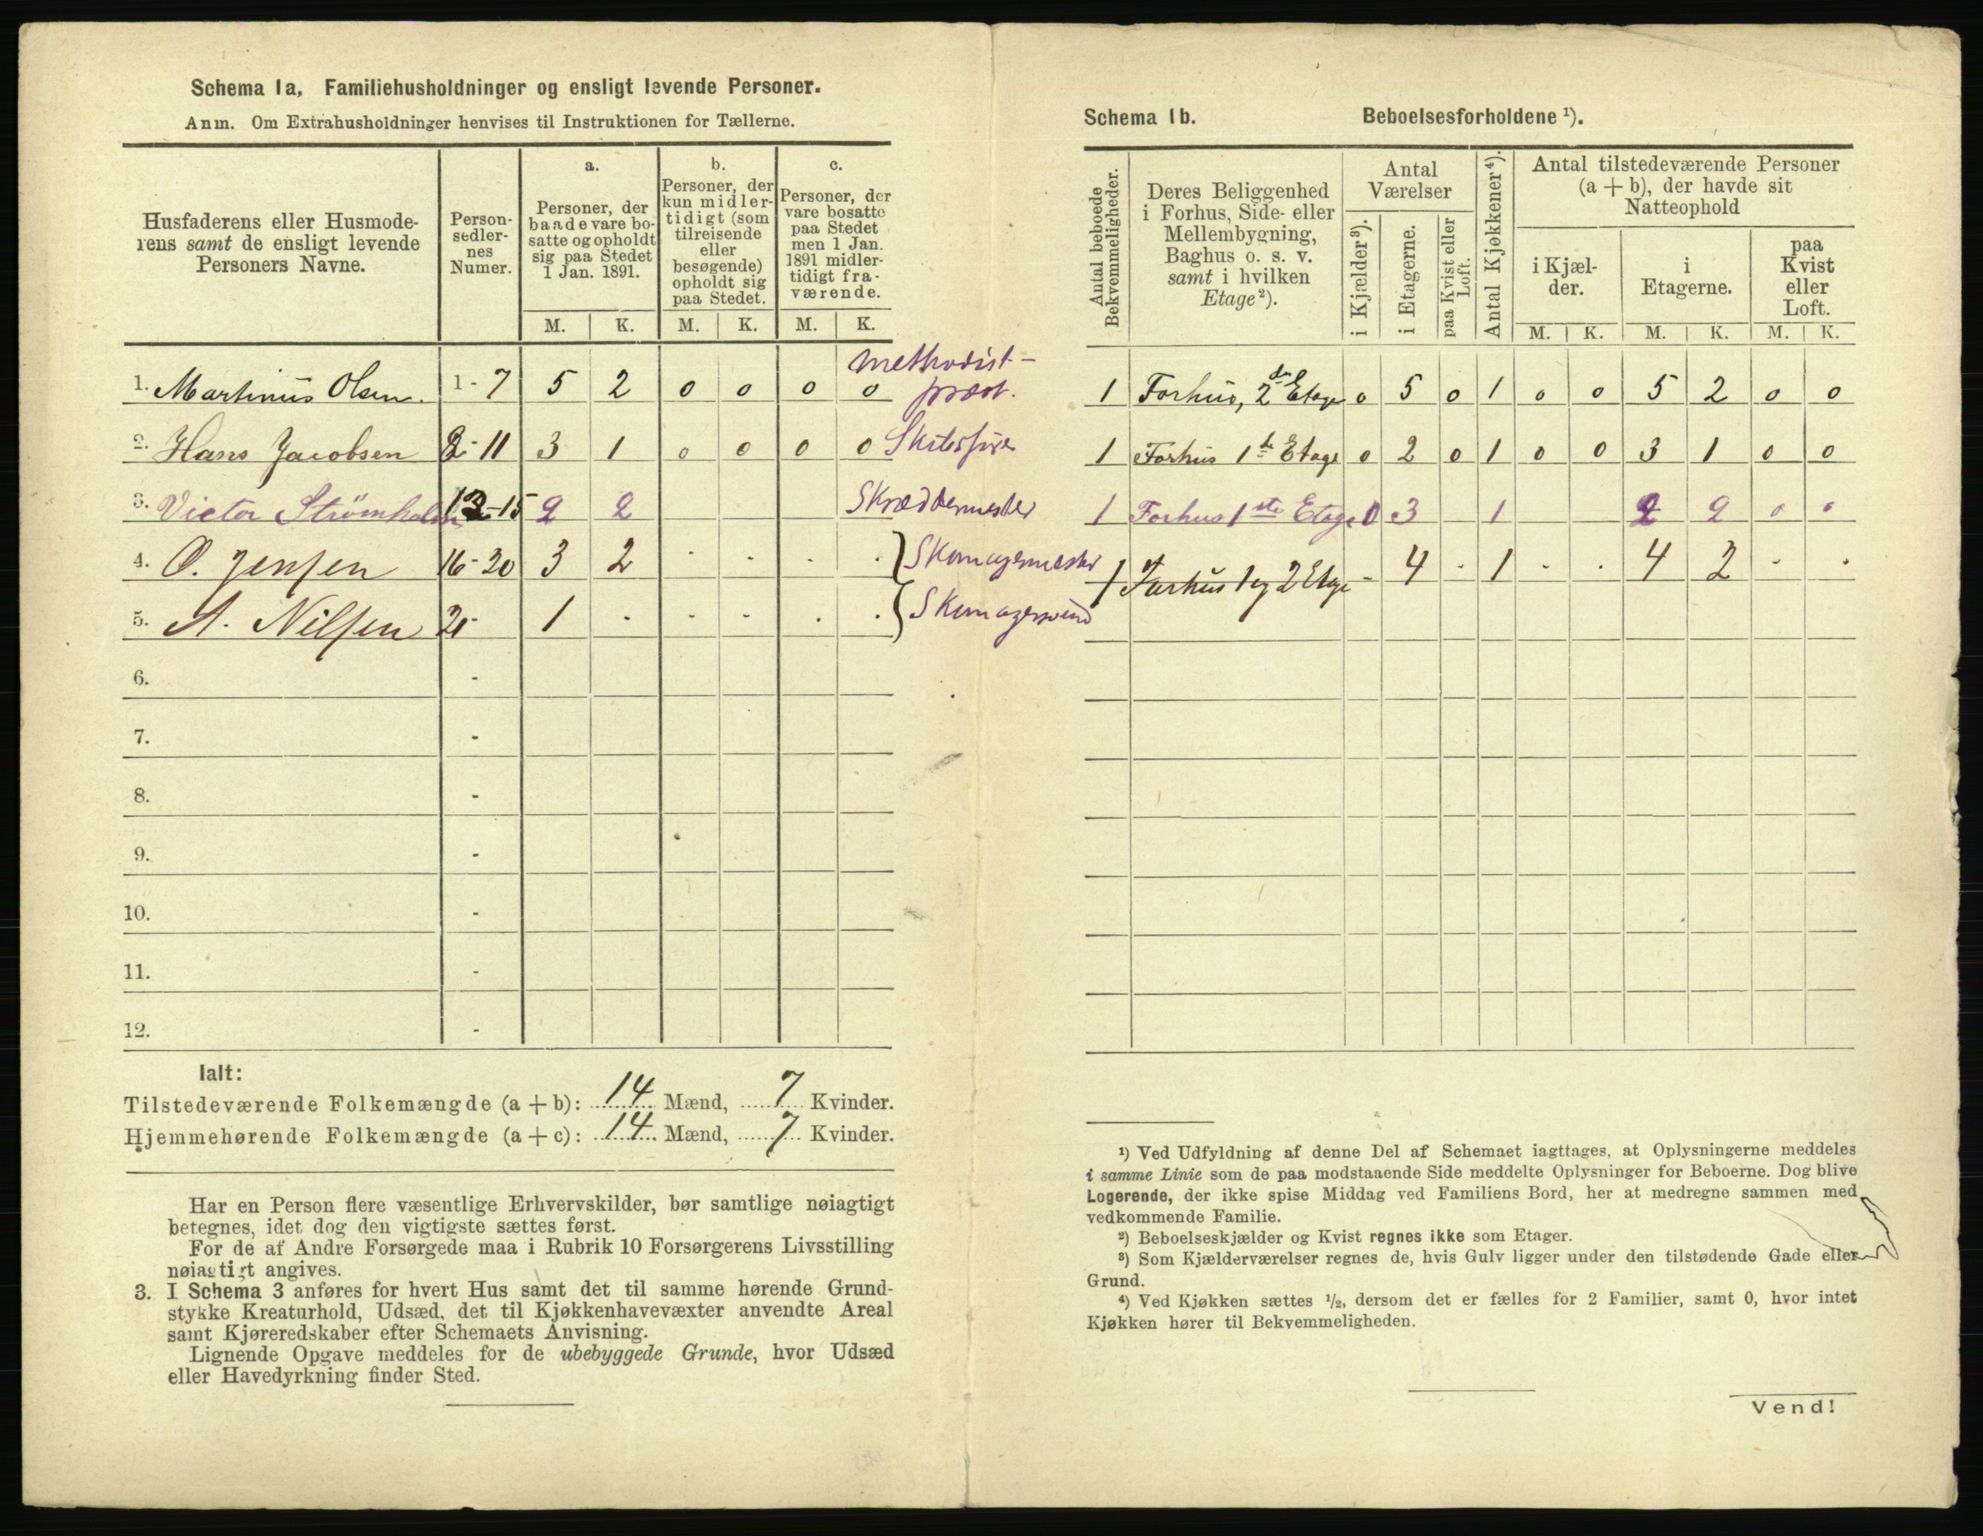 Schema 1a, Familiehusholdninger og ensligt levende Personer.
Anm. Om Extrahusholdninger henvises til Instruktionen for Tællerne.
Husfaderens eller Husmode-
rens samt de ensligt levende
Personers Navne.
Person-
sedler-
nes
Numer.
a.
Personer, der
baade vare bo-
satte og opholdt
sig paa Stedet
1 Jan. 1891.
M. K.
b.
Personer, der
kun midler-
tidigt (som
tilreisende
eller
besøgende)
opholdt sig
paa Stedet.
M. K.
c.
Personer, der
vare bosatte
paa Stedet
men 1 Jan.
1891 midler-
tidigt fra-
værende.
M. K.
1. Martinus Olsen. 1 - 7 5 2 0 0 0 0 methodist-
præst.
2. Hans Jacobsen 8 - 11 3 1 0 0 0 0
3. Victor Strömholm 12 - 15 2 2 Skræddermester
4. O. Jensen 16 - 20 3 2 · · · · Skomagermester
5. A. Nilsen 21 - 1 · · · · · Skomagersvend
6. -
7. -
8. -
9. -
10. -
11. -
12. -
Ialt:
Tilstedeværende Folkemængde (a + b): 14 Mænd, 7 Kvinder.
Hjemmehørende Folkemængde (a + c): 14 Mænd, 7 Kvinder.
Har en Person flere væsentlige Erhvervskilder, bør samtlige nøiagtigt
betegnes, idet dog den vigtigste sættes først.
For de af Andre Forsørgede maa i Rubrik 10 Forsørgerens Livsstilling
nøiagtigt angives.
3. I Schema 3 anføres for hvert Hus samt det til samme hørende Grund-
stykke Kreaturhold, Udsæd, det til Kjøkkenhavevæxter anvendte Areal
samt Kjøreredskaber efter Schemaets Anvisning.
Lignende Opgave meddeles for de ubebyggede Grunde, hvor Udsæd
eller Havedyrkning finder Sted.
Schema 1b. Beboelsesforholdene ¹).
Antal beboede
Bekvemmeligheder.
Deres Beliggenhed
i Forhus, Side- eller
Mellembygning,
Baghus o. s. v.
samt i hvilken
Etage ²).
Antal
Værelser
i Kjælder ³).
i Etagerne.
paa Kvist eller
Loft.
Antal Kjøkkener ⁴).
Antal tilstedeværende Personer
(a + b), der havde sit
Natteophold
i Kjæl-
der.
M. K.
i
Etagerne.
M. K.
paa
Kvist
eller
Loft.
M. K.
1 Forhus, 2den Etage 0 5 0 1 0 0 5 2 0 0
1 Forhus 1ste Etage 0 2 0 1 0 0 3 1 0 0
1 Forhus 1ste Etage 0 3 1 2 2 0 0
1 Forhus 1 og 2 Etage - 4 · 1 · · 4 2 · ·
¹) Ved Udfyldning af denne Del af Schemaet iagttages, at Oplysningerne meddeles
i samme Linie som de paa modstaaende Side meddelte Oplysninger for Beboerne. Dog blive
Logerende, der ikke spise Middag ved Familiens Bord, her at medregne sammen med
vedkommende Familie.
²) Beboelseskjælder og Kvist regnes ikke som Etager.
³) Som Kjælderværelser regnes de, hvis Gulv ligger under den tilstødende Gade eller
Grund.
⁴) Ved Kjøkken sættes ½, dersom det er fælles for 2 Familier, samt 0, hvor intet
Kjøkken hører til Bekvemmeligheden.
Vend!